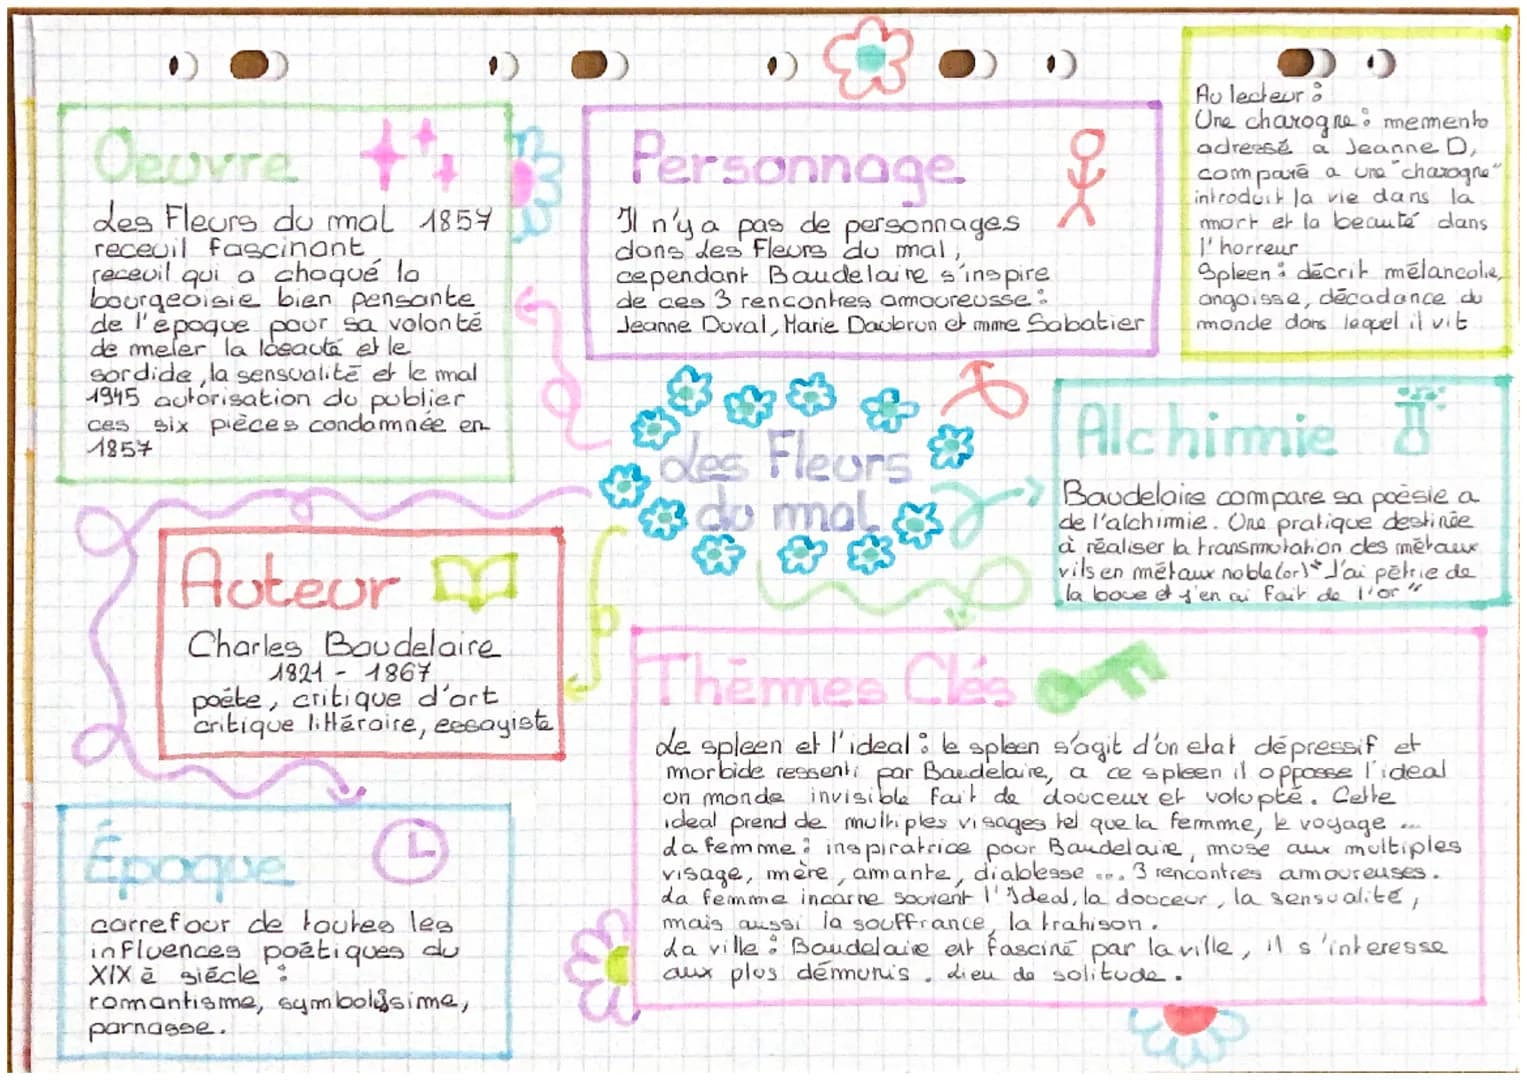 Oeuvre
Les Fleurs du mal 1857
receuil fascinant,
receuil qui a choqué la
bourgeoisie bien pensante
de l'epoque pour sa volonté
de meler la beauté et le
sordide, la sensualité et le mal
1945 autorisation du publier
ces six pièces condamnée en
1857
Personnage
Il n'y a pas de personnages
dans Les Fleurs du mal,
cependant Baudelaire s'inspire
de ces 3 rencontres amoureusse :
Jeanne Duval, Marie Daubrun et mme Sabatier
Au lecteur :
Une charogne : memento
adressé a Jeanne D,
comparé a une "charogne"
introduit la vie dans la
mort et la beauté dans
l'horreur
Spleen : décrit mélancolie,
angoisse, décadance du
monde dans lequel il vit
Les Fleurs
du mal
Alchimie
Baudelaire compare sa poèsie a
de l'alchimie. Une pratique destinée
à réaliser la transmutation des métaux
vils en métaux noble (or) "J'ai pétrie de
la boue et j'en ai fait de l'or"
Auteur
Charles Baudelaire
1821 - 1867
poéte, critique d'art
critique littéraire, essayiste
Thèmes Clés
Le spleen et l'ideal : le spleen s'agit d'un etat dépressif et
morbide ressenti par Baudelaire, a ce spleen il oppose l'ideal
un monde invisible fait de douceur et volupté. Cette
ideal prend de multiples visages tel que la femme, le voyage ...
La femme : inspiratrice pour Baudelaire, muse aux multiples
visage, mère, amante, diablesse ... 3 rencontres amoureuses.
La femme incarne souvent l'Ideal, la douceur, la sensualité,
mais aussi la souffrance, la trahison.
La ville : Baudelaire est fasciné par la ville, il s'interesse
aux plus démunis. Lieu de solitude.
Époque
carrefour de toutes les
influences poétiques du
XIXè siécle :
romantisme, symbolisime,
parnasse.